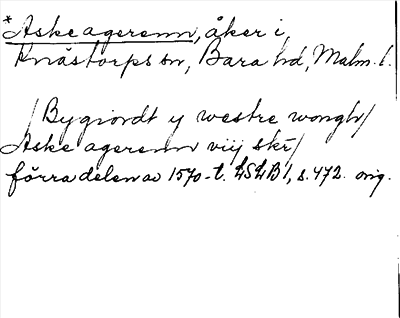 *Askeagerenn, åker i,
Knästorps sn, Bara hd, Malm. l.
/Bygiordt y westre wongh/
Aske agerenn viij skr/
förra delen av 1570-t. LSLB1, s. 472. orig.